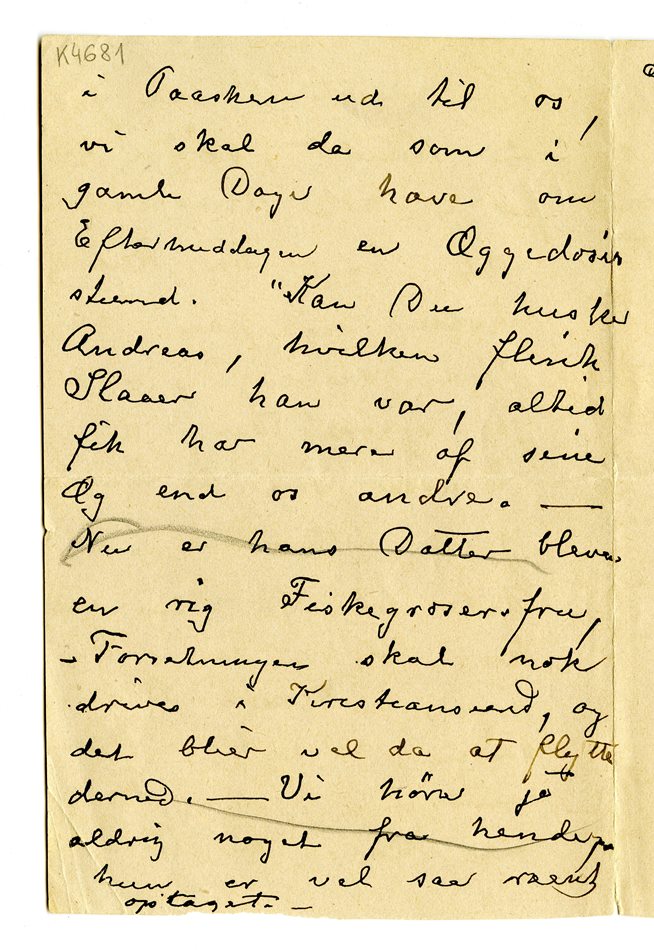 K4681
i Paasken ud til os,
vi skal da som i
gamle Dage have om
Eftermiddagen en Eggedosis
stund. "Kan Du huske
Andreas, hvilken flink
Slaaer han var, altid
fik han mere af sine
Æg end os andre. —
Nu er hans Datter bleven
en rig Fiskegrosserfrue,
- Forretningen skal nok
drives i Kristianssund, og
det blir vel da at flytte
derned. — Vi hører jo
aldrig noget fra hende,
hun er vel saa rent
optaget. -